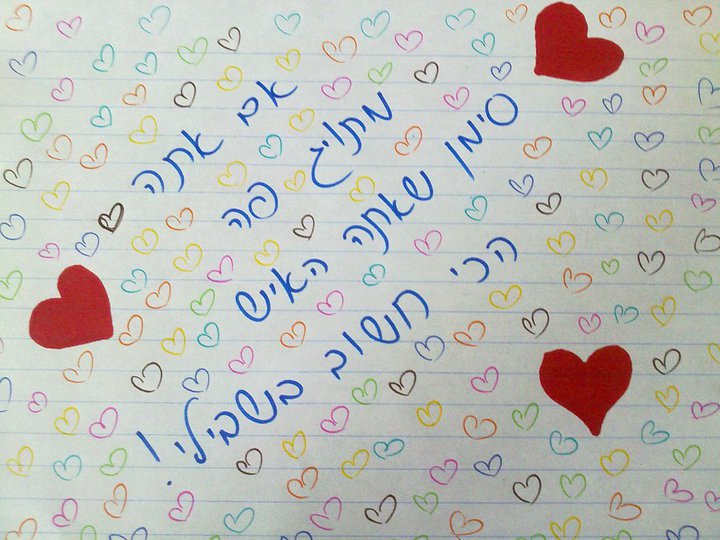 אם אתה
מתויג פה
סימן שאתה האיש
הכי חשוב בשבילי!